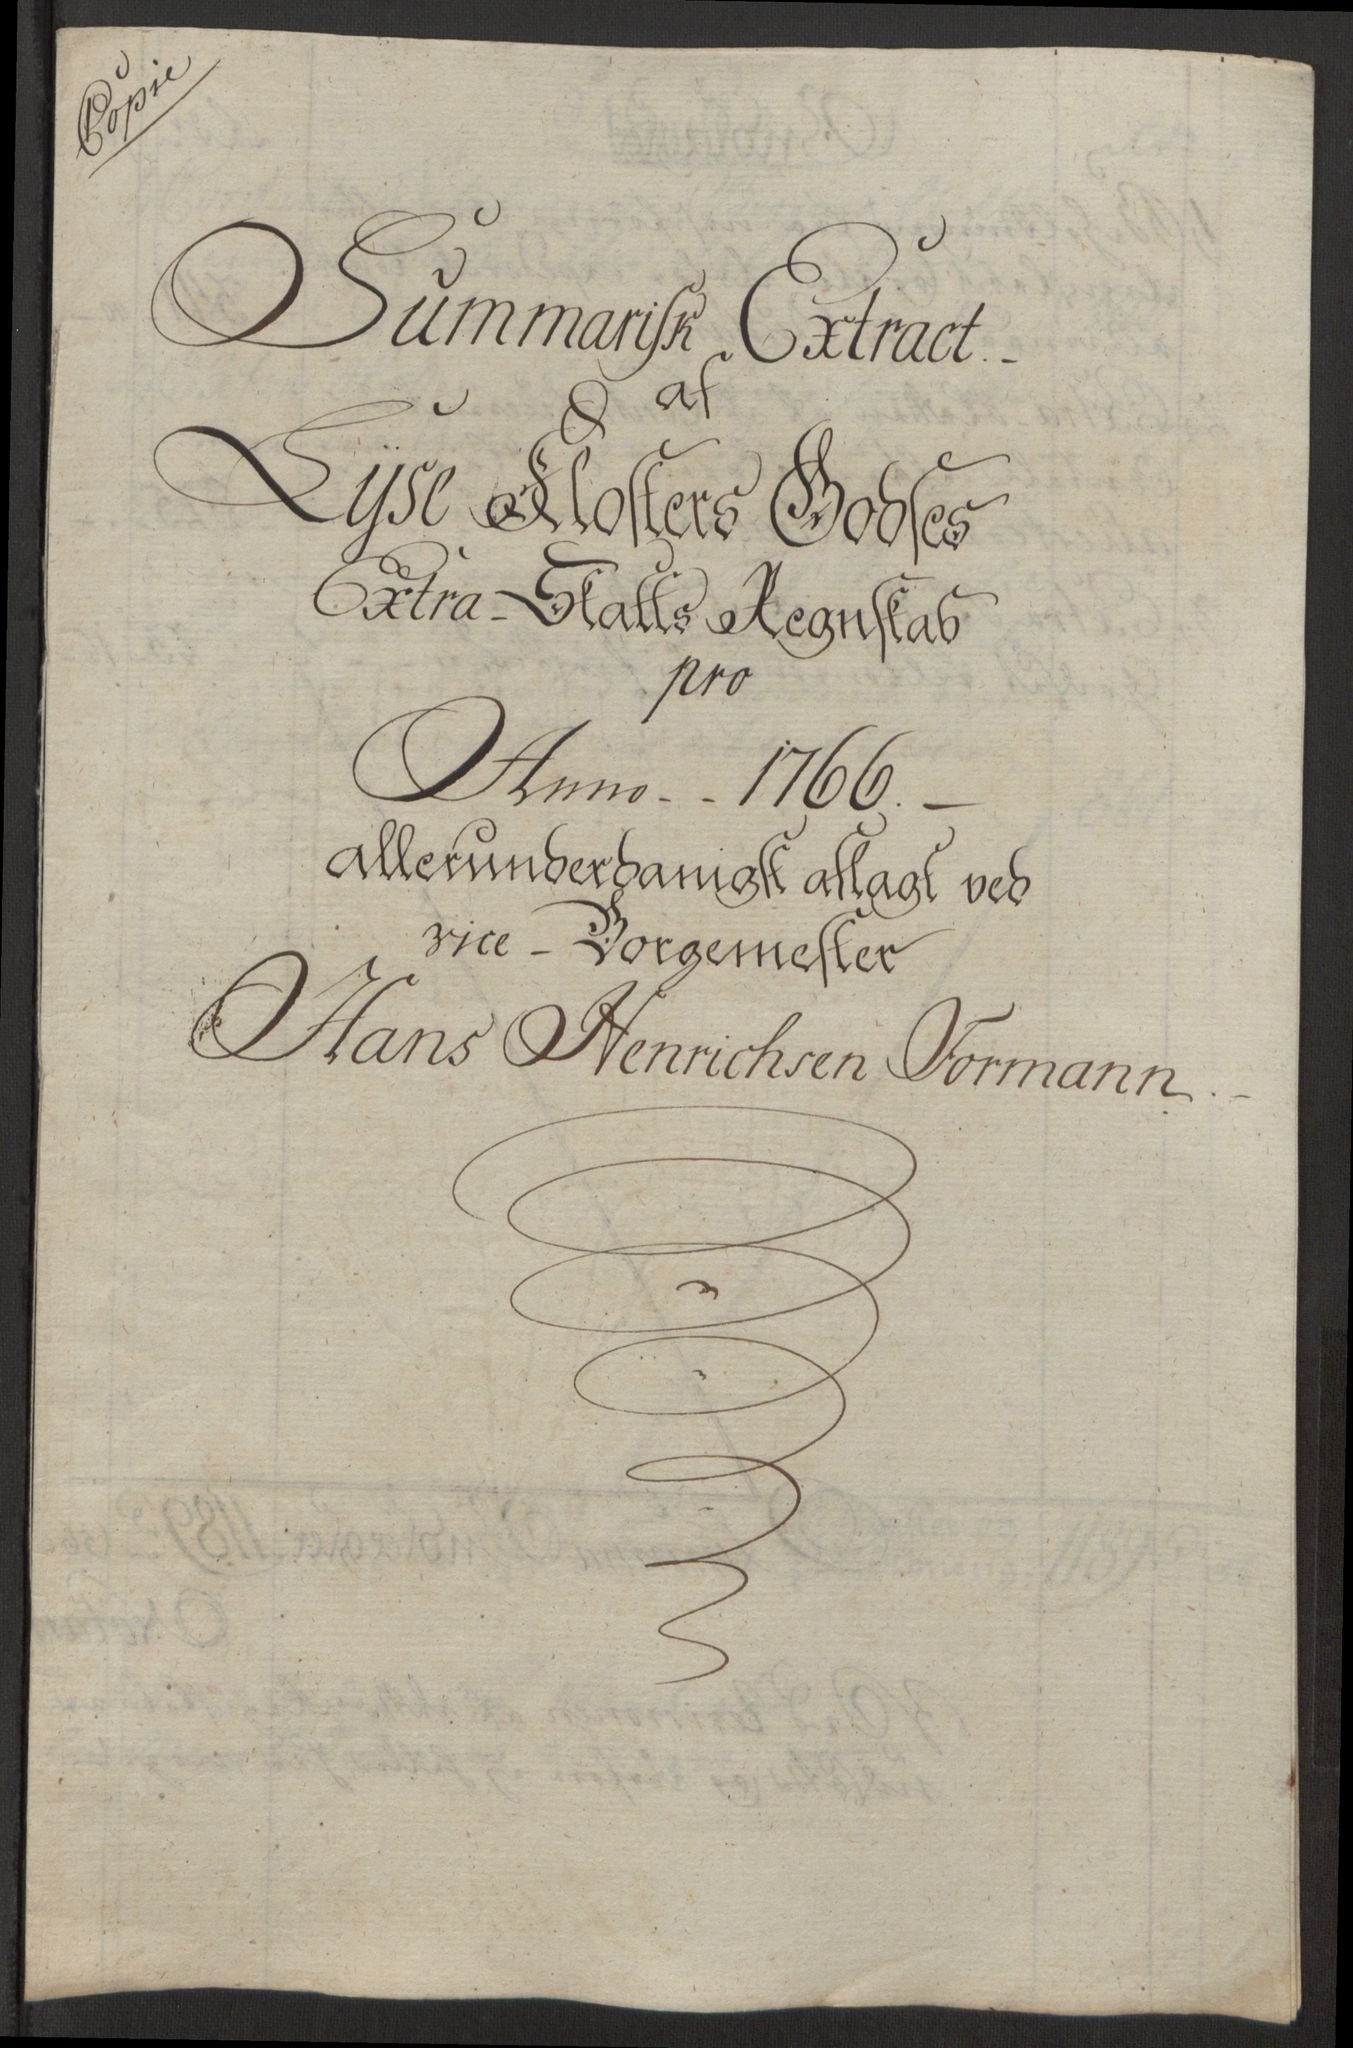 Copie
Summarisk Extract.-
af
Lÿse Klosters Godses
Extra-Skatts Regnskab
pro
Anno - - 1766. -
allerunderdanigst aflagt ved
vice-Borgemester
Hans Henrichsen Formann. -